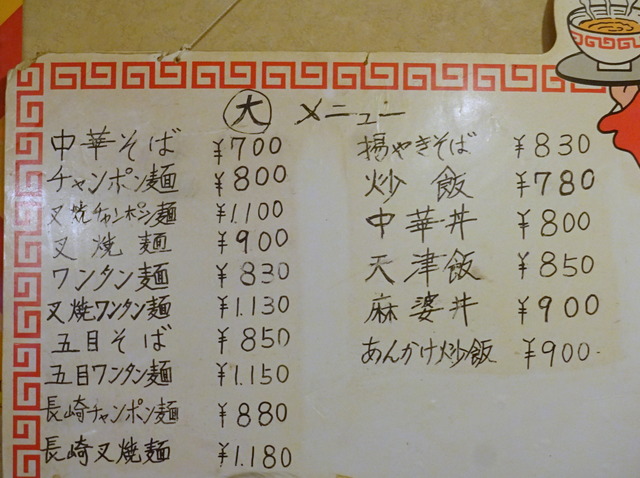 大 メニュー
中華そば ¥700
チャンポン麺 ¥800
叉焼チャンポン麺 ¥1.100
叉焼麺 ¥900
ワンタン麺 ¥830
叉焼ワンタン麺 ¥1.130
五目そば ¥850
五目ワンタン麺 ¥1.150
長崎チャンポン麺 ¥880
長崎叉焼麺 ¥1.180
揚やきそば ¥830
炒飯 ¥780
中華丼 ¥800
天津飯 ¥850
麻婆丼 ¥900
あんかけ炒飯 ¥900.